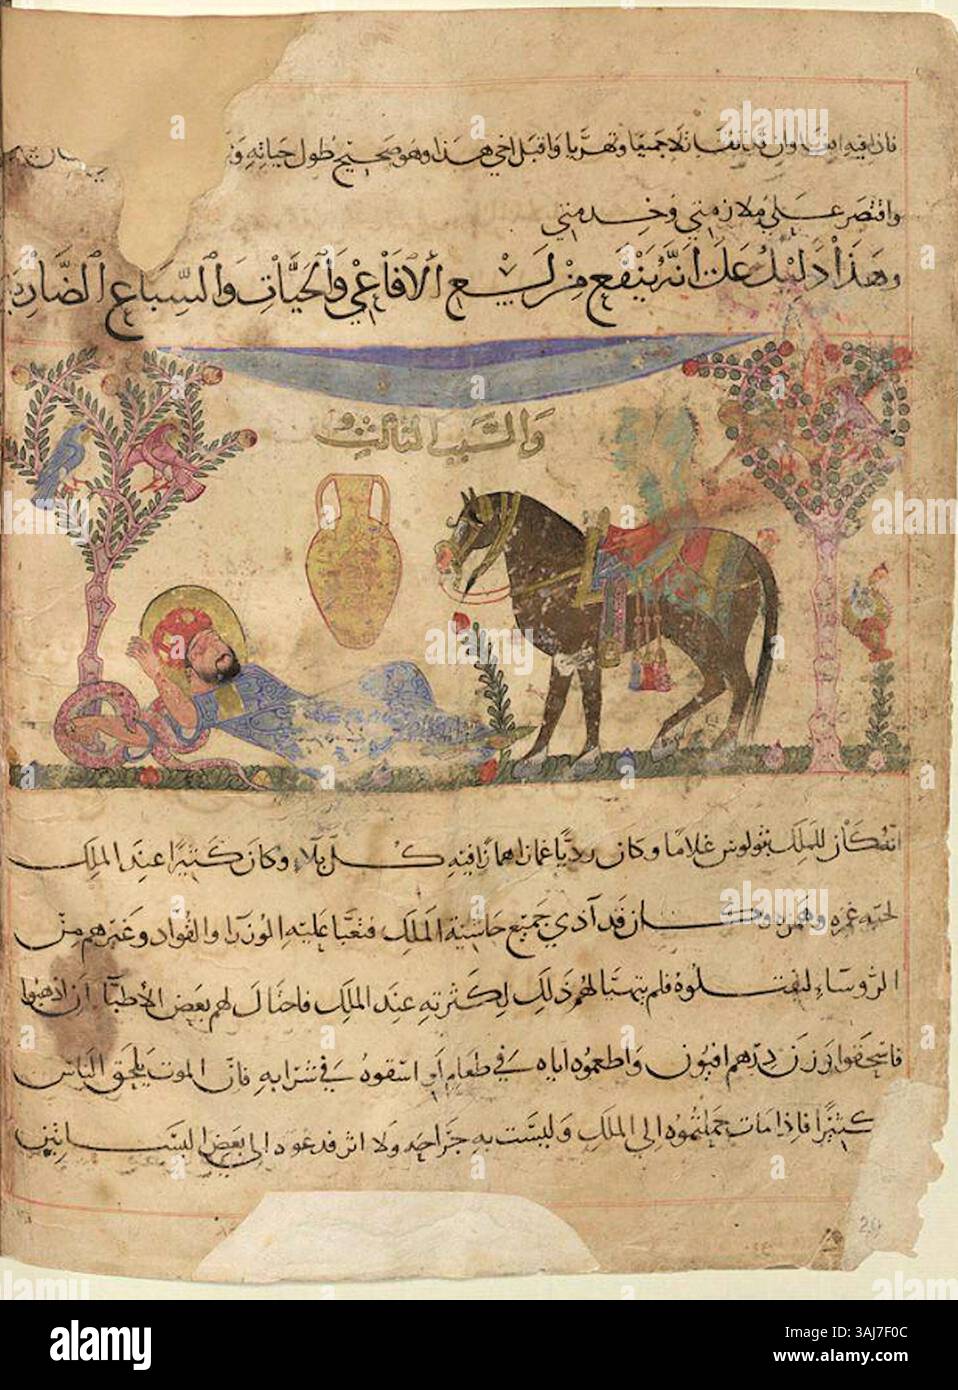 فان افيه ايضا وان تكاتفا ثلا جميعا وتهريا واقبل اخي هذا وهو صحيح طول حياته
واقتصر على ملازمتي وخدمتي
وهذا دليل على انه ينفع من لسع الأفاعي والحيات والسباع الضارية
والسبب الثالث
انه كان للملك بثولوس غلاما وكان رديا غمازا همازا فيه كل بلاء وكان كثيرا عند الملك
لحبه غمزه وهمزه وكان قد آذى جميع حاشية الملك فتعبا عليه الوزرا والقواد وغيرهم من
الروساء ليقتلوه فلم يتهيا لهم ذلك لكثرته عند الملك فاحتال لهم بعض الأطبا أن اذهبوا
فاسحقوا وزن درهم افيون واطعموه اياه في طعام أو اسقوه في شرابه فان الموت يلحق الناس
كثيرا فاذا مات حملتموه الى الملك وليست به جراحه ولا اثر فدعوه الى بعض البساتين
24
alamy
Image ID: 3AJ7F0C
www.alamy.com